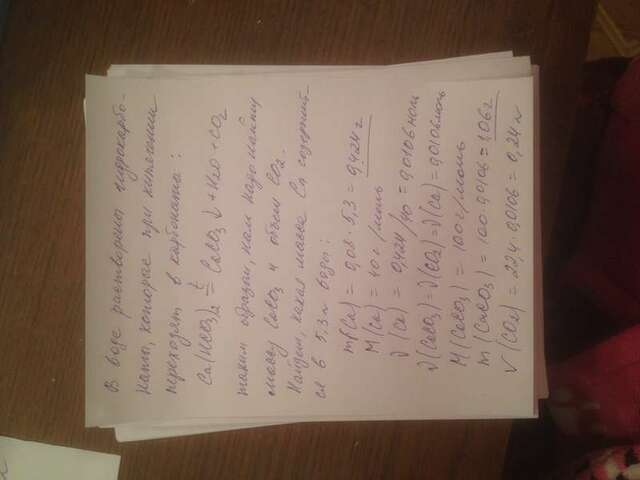 В воде растворены гидрокарбо-
наты, которые при кипячении
переходят в карбонаты:
Ca(HCO3)2 t= CaCO3↓ + H2O + CO2
таким образом, нам надо найти
массу CaCO3 и объем CO2.
Найдем, какая масса Ca содержит-
ся в 5,3 л воды:
m(Ca) = 0,08 · 5,3 = 0,424 г
M(Ca) = 40 г/моль
ν(Ca) = 0,424/40 = 0,0106 моль
ν(CaCO3) = ν(CO2) = ν(Ca) = 0,0106 моль
M(CaCO3) = 100 г/моль
m(CaCO3) = 100 · 0,0106 = 1,06 г
V(CO2) = 22,4 · 0,0106 = 0,24 л